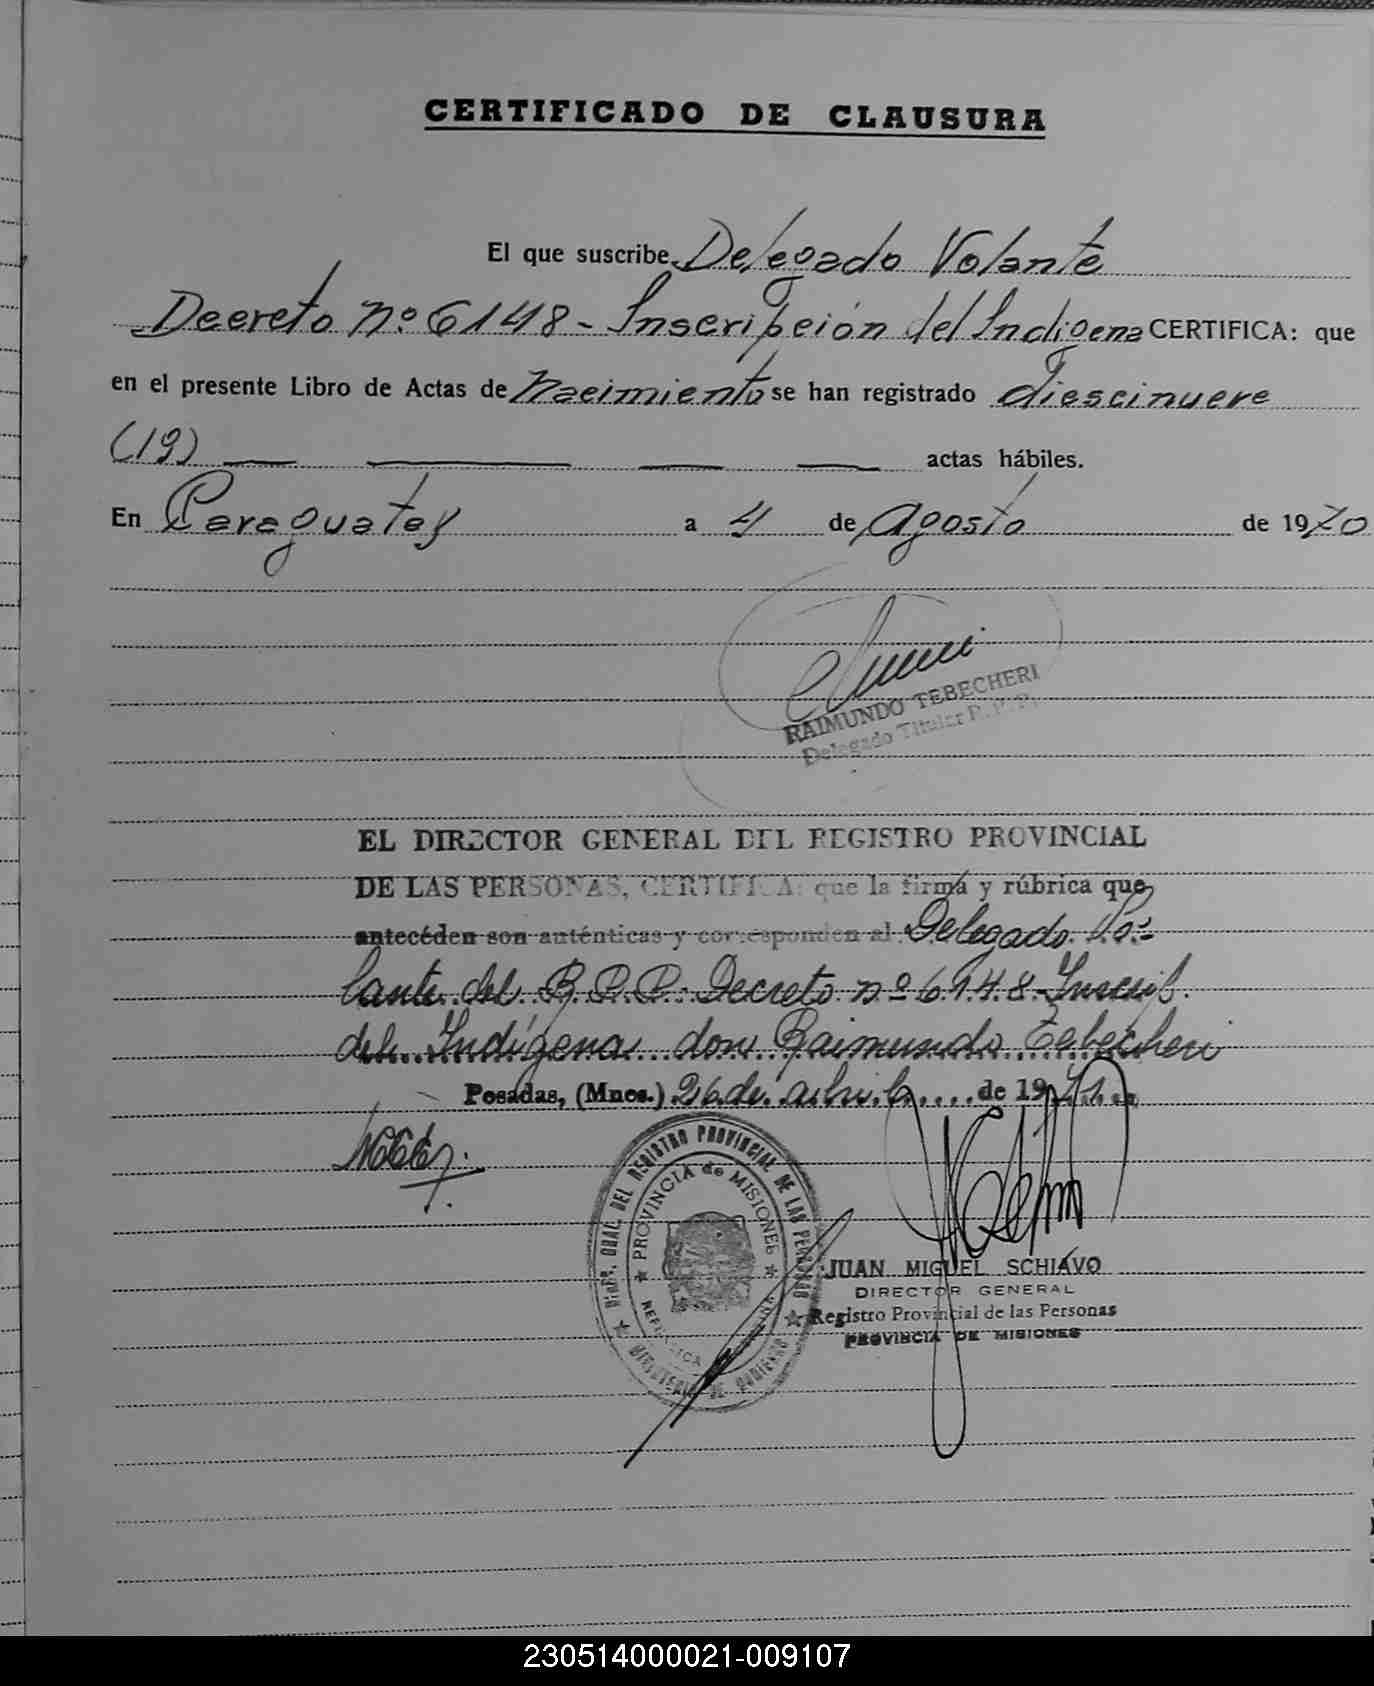 CERTIFICADO DE CLAUSURA
El que suscribe Delegado Volante
Decreto nº 6148 - Inscripción del Indígena CERTIFICA: que
en el presente Libro de Actas de nacimiento se han registrado diescinueve
(19) actas hábiles.
En Paraguatey a 4 de Agosto de 1970
RAIMUNDO TEBECHERI
Delegado Titular R. P. P.
EL DIRECTOR GENERAL DEL REGISTRO PROVINCIAL
DE LAS PERSONAS, CERTIFICA: que la firma y rúbrica que
antecéden son auténticas y corresponden al Delegado Vo-
lante del R.P.P. Decreto nº 6148 - Inscrip.
del Indígena don Raimundo Tebecheri
Posadas, (Mnes.) 26 de abril de 1971
DIREC. GRAL. DEL REGISTRO PROVINCIAL DE LAS PERSONAS
PROVINCIA de MISIONES
REPUBLICA ARGENTINA
MINISTERIO DE GOBIERNO
JUAN MIGUEL SCHIAVO
DIRECTOR GENERAL
Registro Provincial de las Personas
PROVINCIA DE MISIONES
230514000021-009107